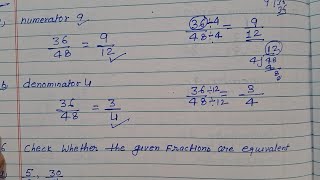 numerator 9
36/48 = 9/12
36÷4/48÷4 = 9/12
12
4)48
b denominator 4
36/48 = 3/4
36÷12/48÷12 = 3/4
6 Check Whether the given Fractions are equivalent
5 30